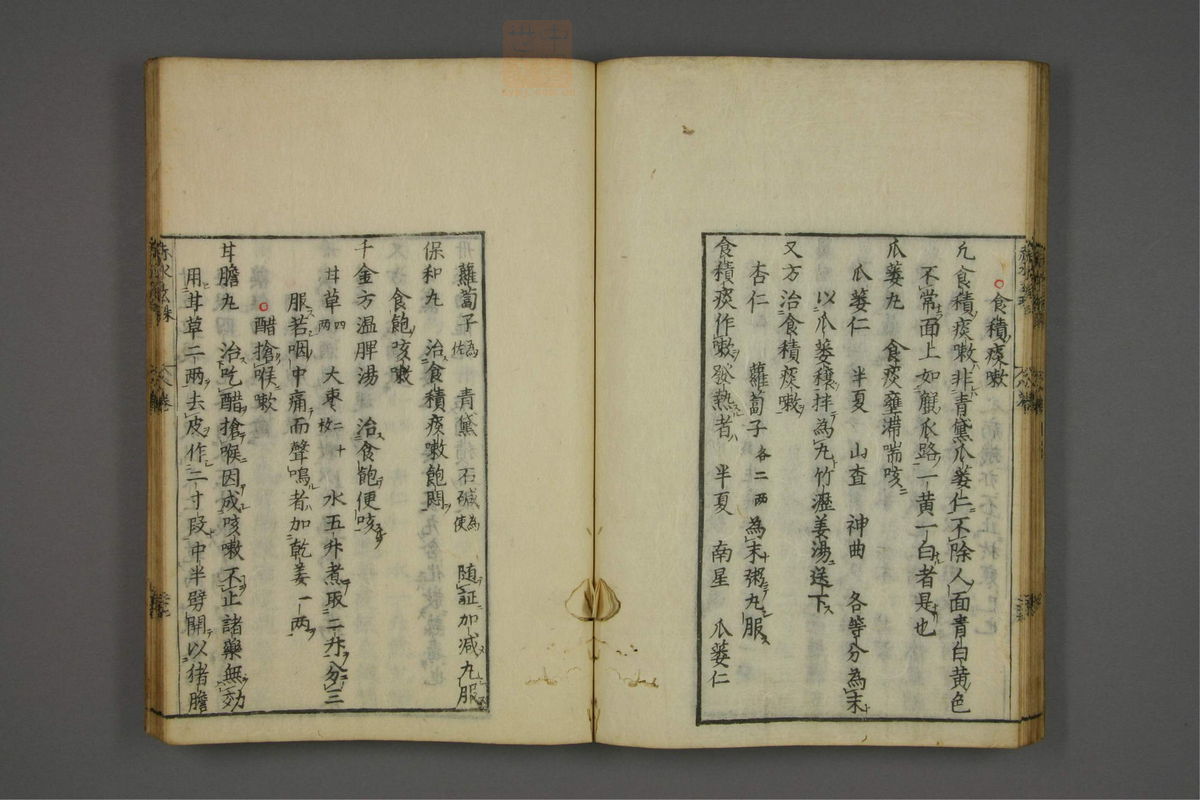 食積痰嗽
凢食積痰嗽非青黛瓜蔞仁不除人面青白黄色
不常面上如蠏爪路一黄一白者是也
瓜蔞丸 食痰壅滞喘咳
瓜蔞仁 半夏 山査 神曲 各等分為末
以瓜蔞穰拌為丸竹瀝姜湯送下
又方治食積痰嗽
杏仁 蘿蔔子各二两 為末粥丸服
食積痰作嗽発熱者 半夏 南星 瓜蔞仁
蘿蔔子為佐 青黛 石碱為使 随証加减丸服
保和丸 治食積痰嗽飽悶
食飽咳嗽
千金方温脾湯 治食飽便咳
甘草四两 大枣二十枚 水五升煮取二升分三
服若咽中痛而聲鳴者加乾姜一两
醋搶喉嗽
甘膽丸 治吃醋搶喉因成咳嗽不止諸藥無効
用甘草二两去皮作二寸段中半劈開以猪膽